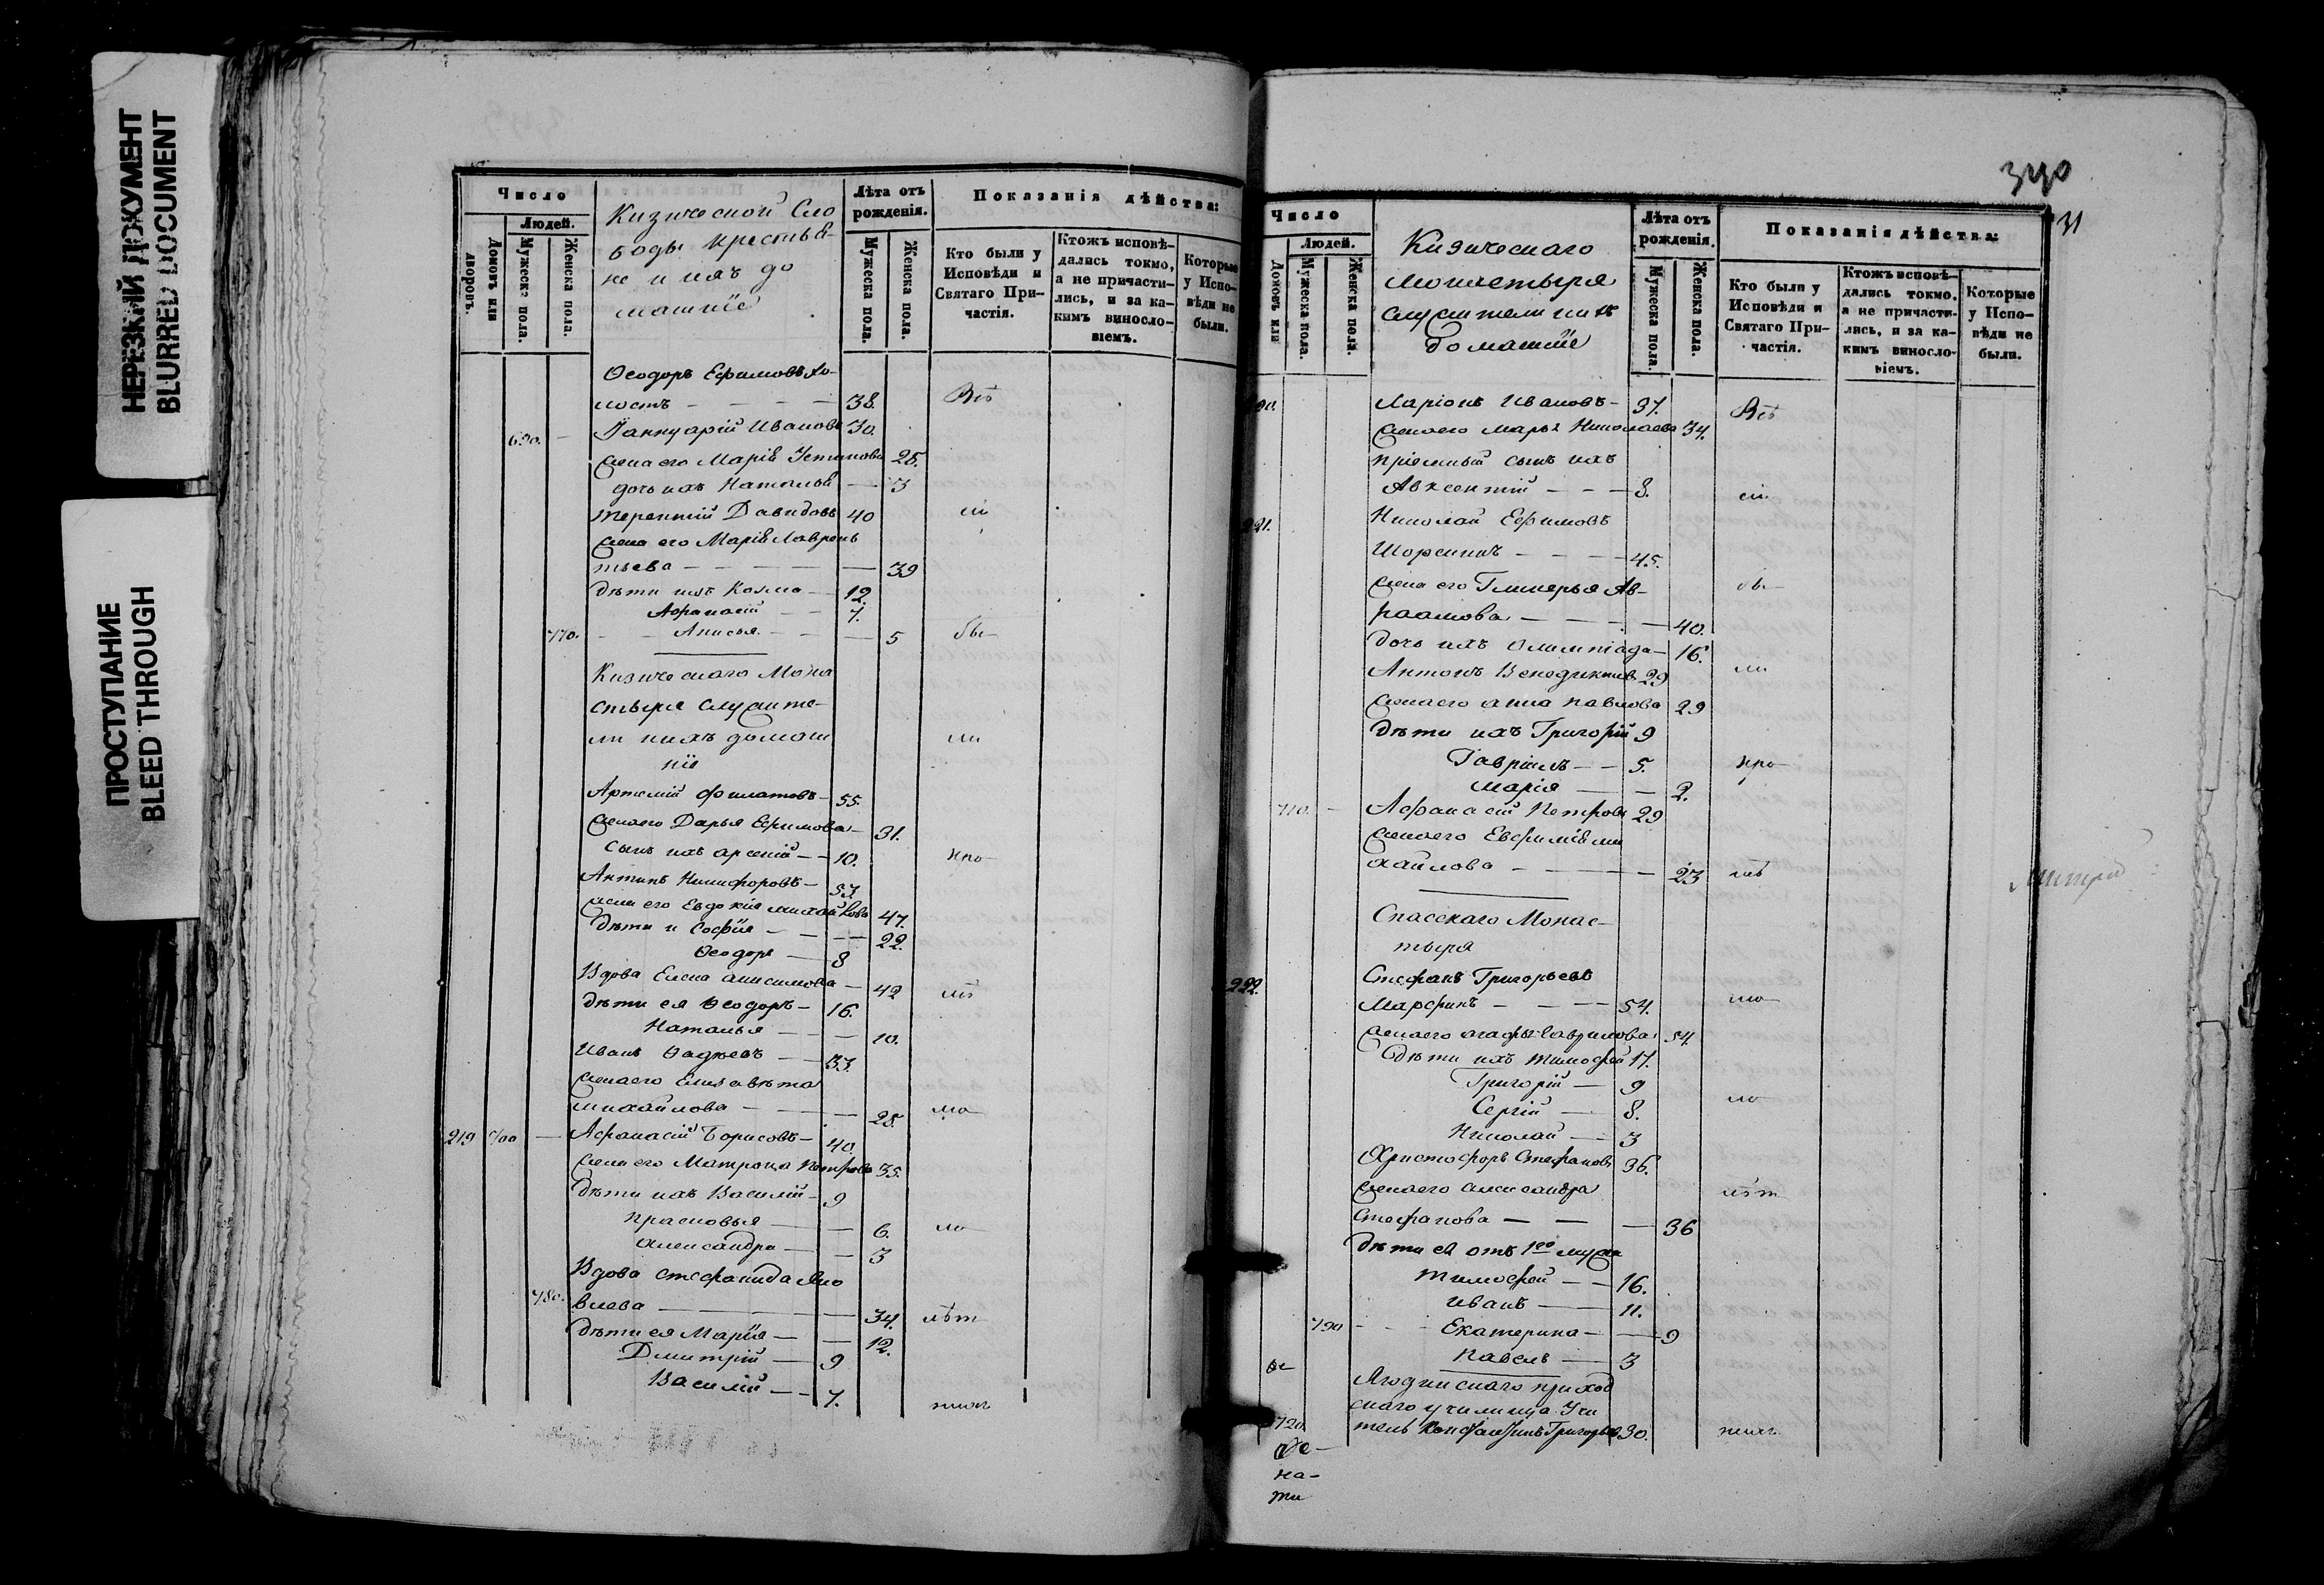 НЕРЕЗКИЙ ДОКУМЕНТ
BLURRED DOCUMENT
ПРОСТУПАНИЕ
BLEED THROUGH
Число
Людей.
Домовъ или дворовъ.
Мужеска пола.
Женска пола.
Кизической Сло
боды крестья-
не и ихъ до
машнiе
Лѣта отъ рожденія.
Мужеска пола.
Женска пола.
Показанія дѣйства:
Кто были у Исповѣди и Святаго При-частія.
Ктожъ исповѣ-дались токмо, а не причасти-лись, и за ка-кимъ винослo-віемъ.
Которые у Испо-вѣди не были.
Ѳеодоръ Ефимовъ Хо-
лостъ — 38. Всѣ
690. Іаннуарій Ивановъ 30.
Жена его Марія Устинова 25.
дочь ихъ Наталья — 3
Терентій Давидовъ 40 сіи
Жена его Марія Лаврень
тьева — 39
дѣти ихъ Козма — 12.
Афанасій — 7.
770. Анисья — 5 бы-
Кизическаго Мона
стыря служите-
ли ихъ домаш ли
ніе
Артемій Филатовъ — 55.
Жена его Дарья Ефимова — 31.
сынъ ихъ Арсеній — 10. при-
Антипъ Никифоровъ — 53
Жена его Евдокія Михайлова 47.
дѣти и Софія — 22.
Ѳеодоръ — 8
Вдова Елена Анисимова — 42
дѣти ея Ѳеодоръ — 16.
Наталья — 10.
Иванъ Фадѣевъ — 33.
Жена его Елизавета
Михайлова — 25.
219 700 — Афанасій Борисовъ — 40.
Жена его Матрона Петрова 35.
дѣти ихъ Василій — 9
Прасковья — 6.
Александра — 3
Вдова Стефанида Яко
780. влева — 34. лѣт
дѣти ея Марія — 12.
Дмитрій — 9
Василій — 7.
340
31
Число
Людей.
Домовъ или
Мужеска пола.
Женска пола.
Кизическаго
монастыря
служители ихъ
домашніе
Лѣта отъ рожденія.
Мужеска пола.
Женска пола.
Показанія дѣйства:
Кто были у Исповѣди и Святаго При-частія.
Ктожъ исповѣ-дались токмо, а не причасти-лись, и за ка-кимъ винослo-віемъ.
Которые у Испо-вѣди не были.
Ларіонъ Ивановъ — 37. Всѣ
Жена его Марья Николаева 34.
Пріемный сынъ ихъ
Авксентій — 8. сіи
221. Николай Ефимовъ
Шорсинъ — 45.
Жена его Гликерья Ав- бы-
раамова — 40.
дочь ихъ Олимпіада — 16.
Антонъ Венедиктовъ 29 ли
Жена его Анна Павлова 29
дѣти ихъ Григорій 9
Гавріилъ — 5. при-
Марія — 2.
710. — Афанасій Петровъ 29
Жена его Евфимія Ми
хайлова — 23
Спасскаго Монас-
тыря
222. Стефанъ Григорьевъ
Марфинъ — 54.
Жена его Агафья Гаврилова 54.
дѣти ихъ Тимофей 17.
Григорій — 9
Сергій — 8.
Николай — 3
Христофоръ Стефановъ 36.
Жена его Александра лѣт
Стефанова — 36
дѣти ея отъ 1го мужа
Тимофей — 16.
Иванъ — 11.
790 Екатерина — 9
Павелъ — 3
Ягодинскаго приход
скаго училища Учи
720. тель Константинъ Григорьевъ 30.
на-
ти